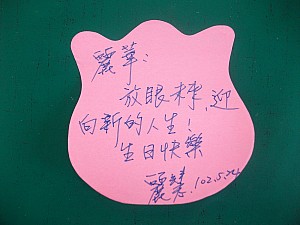 麗華：
放眼未來,迎
向新的人生！
生日快樂
麗慧.102.5.24